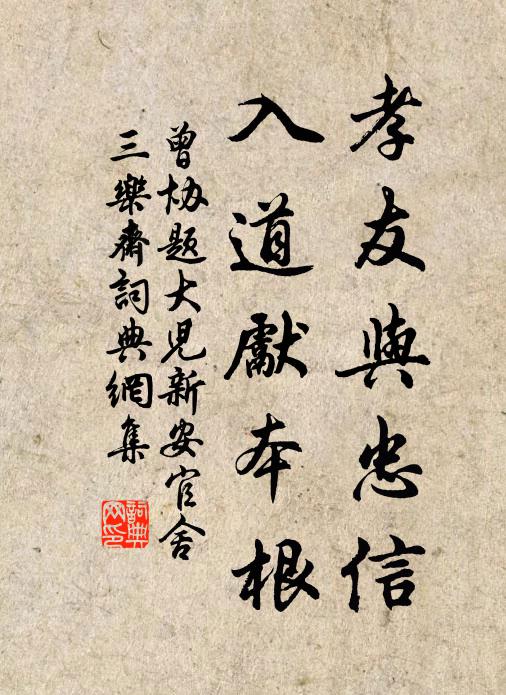 孝友與忠信
入道獻本根
曾协題大児新安官舍
三樂齋詞典網集
詞典
网印